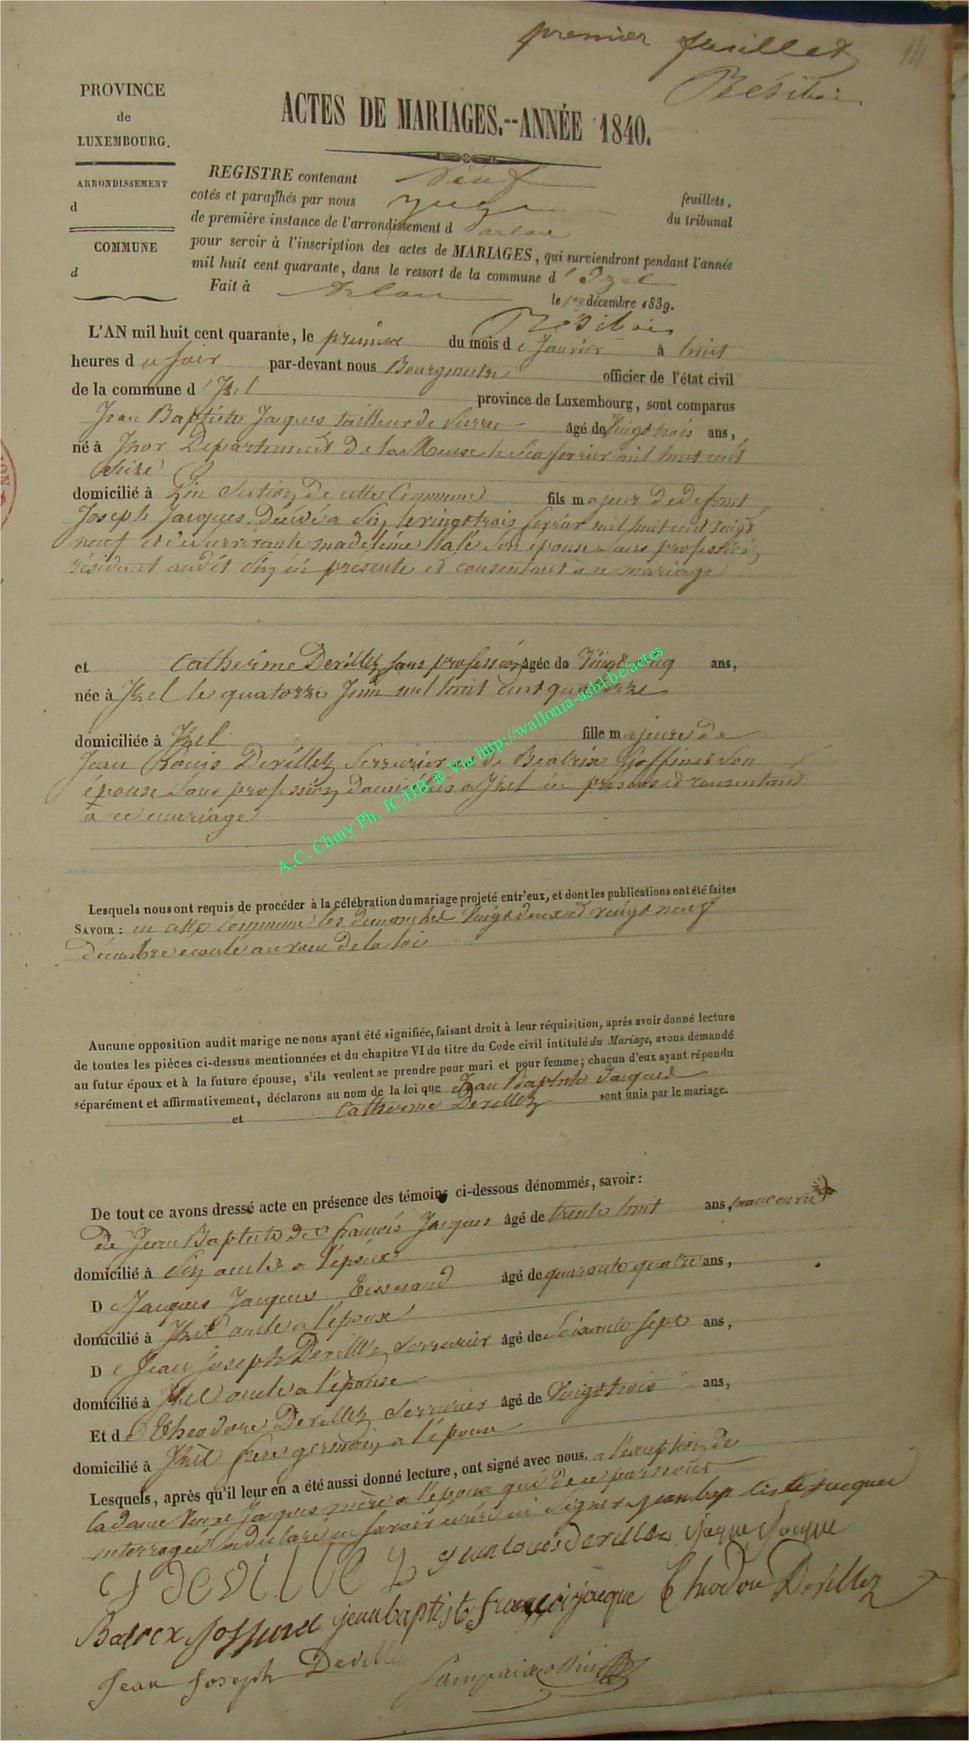 premier feuillet
PROVINCE
de
LUXEMBOURG.
ARRONDISSEMENT
d
COMMUNE
d
ACTES DE MARIAGES.--ANNÉE 1840.
REGISTRE contenant neuf feuillets,
cotés et paraphés par nous juge du tribunal
de première instance de l'arrondissement d
pour servir à l'inscription des actes de MARIAGES, qui surviendront pendant l'année
mil huit cent quarante, dans le ressort de la commune d'Izel
Fait à Arlon le décembre 1839.
L'AN mil huit cent quarante, le premier du mois de Janvier à huit
heures du soir par-devant nous Bourgmestre officier de l'état civil
de la commune d'Izel province de Luxembourg, sont comparus
Jean Baptiste Jacques tailleur de pierres âgé de Vingt trois ans,
né à Departement de la Meuse le six fevrier mil huit cent
seize
domicilié à section de cette Commune fils majeur de defunt
Joseph Jacques Décédé a le vingt trois fevrier mil huit cent vingt
neuf et de survivante madeleine son epouse sans profession
résidant audit ici presente et consentant a ce mariage
et Catherine Devillez sans profession agée de Vingt cinq ans,
née à Izel le quatorze Juin mil huit cent quatorze
domiciliée à Izel fille majeure de
Jean Louis Devillez Serrurier et de Beatrix Goffinet son
épouse sans profession domiciliés a Izel ici présens et consentant
a ce mariage
Lesquels nous ont requis de procéder à la célébration du mariage projeté entr'eux, et dont les publications ont été faites
SAVOIR : en cette commune les dimanches Vingt deux et vingt neuf
Décembre ecoulé au vœu de la loi
Aucune opposition audit marige ne nous ayant été signifiée, faisant droit à leur réquisition, après avoir donné lecture
de toutes les pièces ci-dessus mentionnées et du chapitre VI du titre du Code civil intitulé du Mariage, avons demandé
au futur époux et à la future épouse, s'ils veulent se prendre pour mari et pour femme; chacun d'eux ayant répondu
séparément et affirmativement, déclarons au nom de la loi que Jean Baptiste Jacques
et Catherine Devillez sont unis par le mariage.
De tout ce avons dressé acte en présence des témoins ci-dessous dénommés, savoir:
de Jean Baptiste françois Jacques âgé de trente huit ans
domicilié à oncle a l'époux
D Jacques Jacques Tisserand âgé de quarante quatre ans,
domicilié à Izel oncle a l'époux
De Jean Joseph Devillez serrurier âgé de soixante sept ans,
domicilié à Izel oncle a l'épouse
Et de Theodore Devillez serrurier âgé de Vingt trois ans,
domicilié à Izel frere germain a l'épouse
Lesquels, après qu'il leur en a été aussi donné lecture, ont signé avec nous, a l'exception de
la dame Veuve Jacques mère a l'époux qui de ce par nous
interrogée a declaré ne savoir écrire ni signer jean baptiste jacques
C devillez jean louis devillez jaque jacque
jean baptiste françois jacque Theodore Devillez
Jean Joseph Devillez
A.C. Chiny Ph. JC/HB ® Via http://wallonia-asbl.be/actes